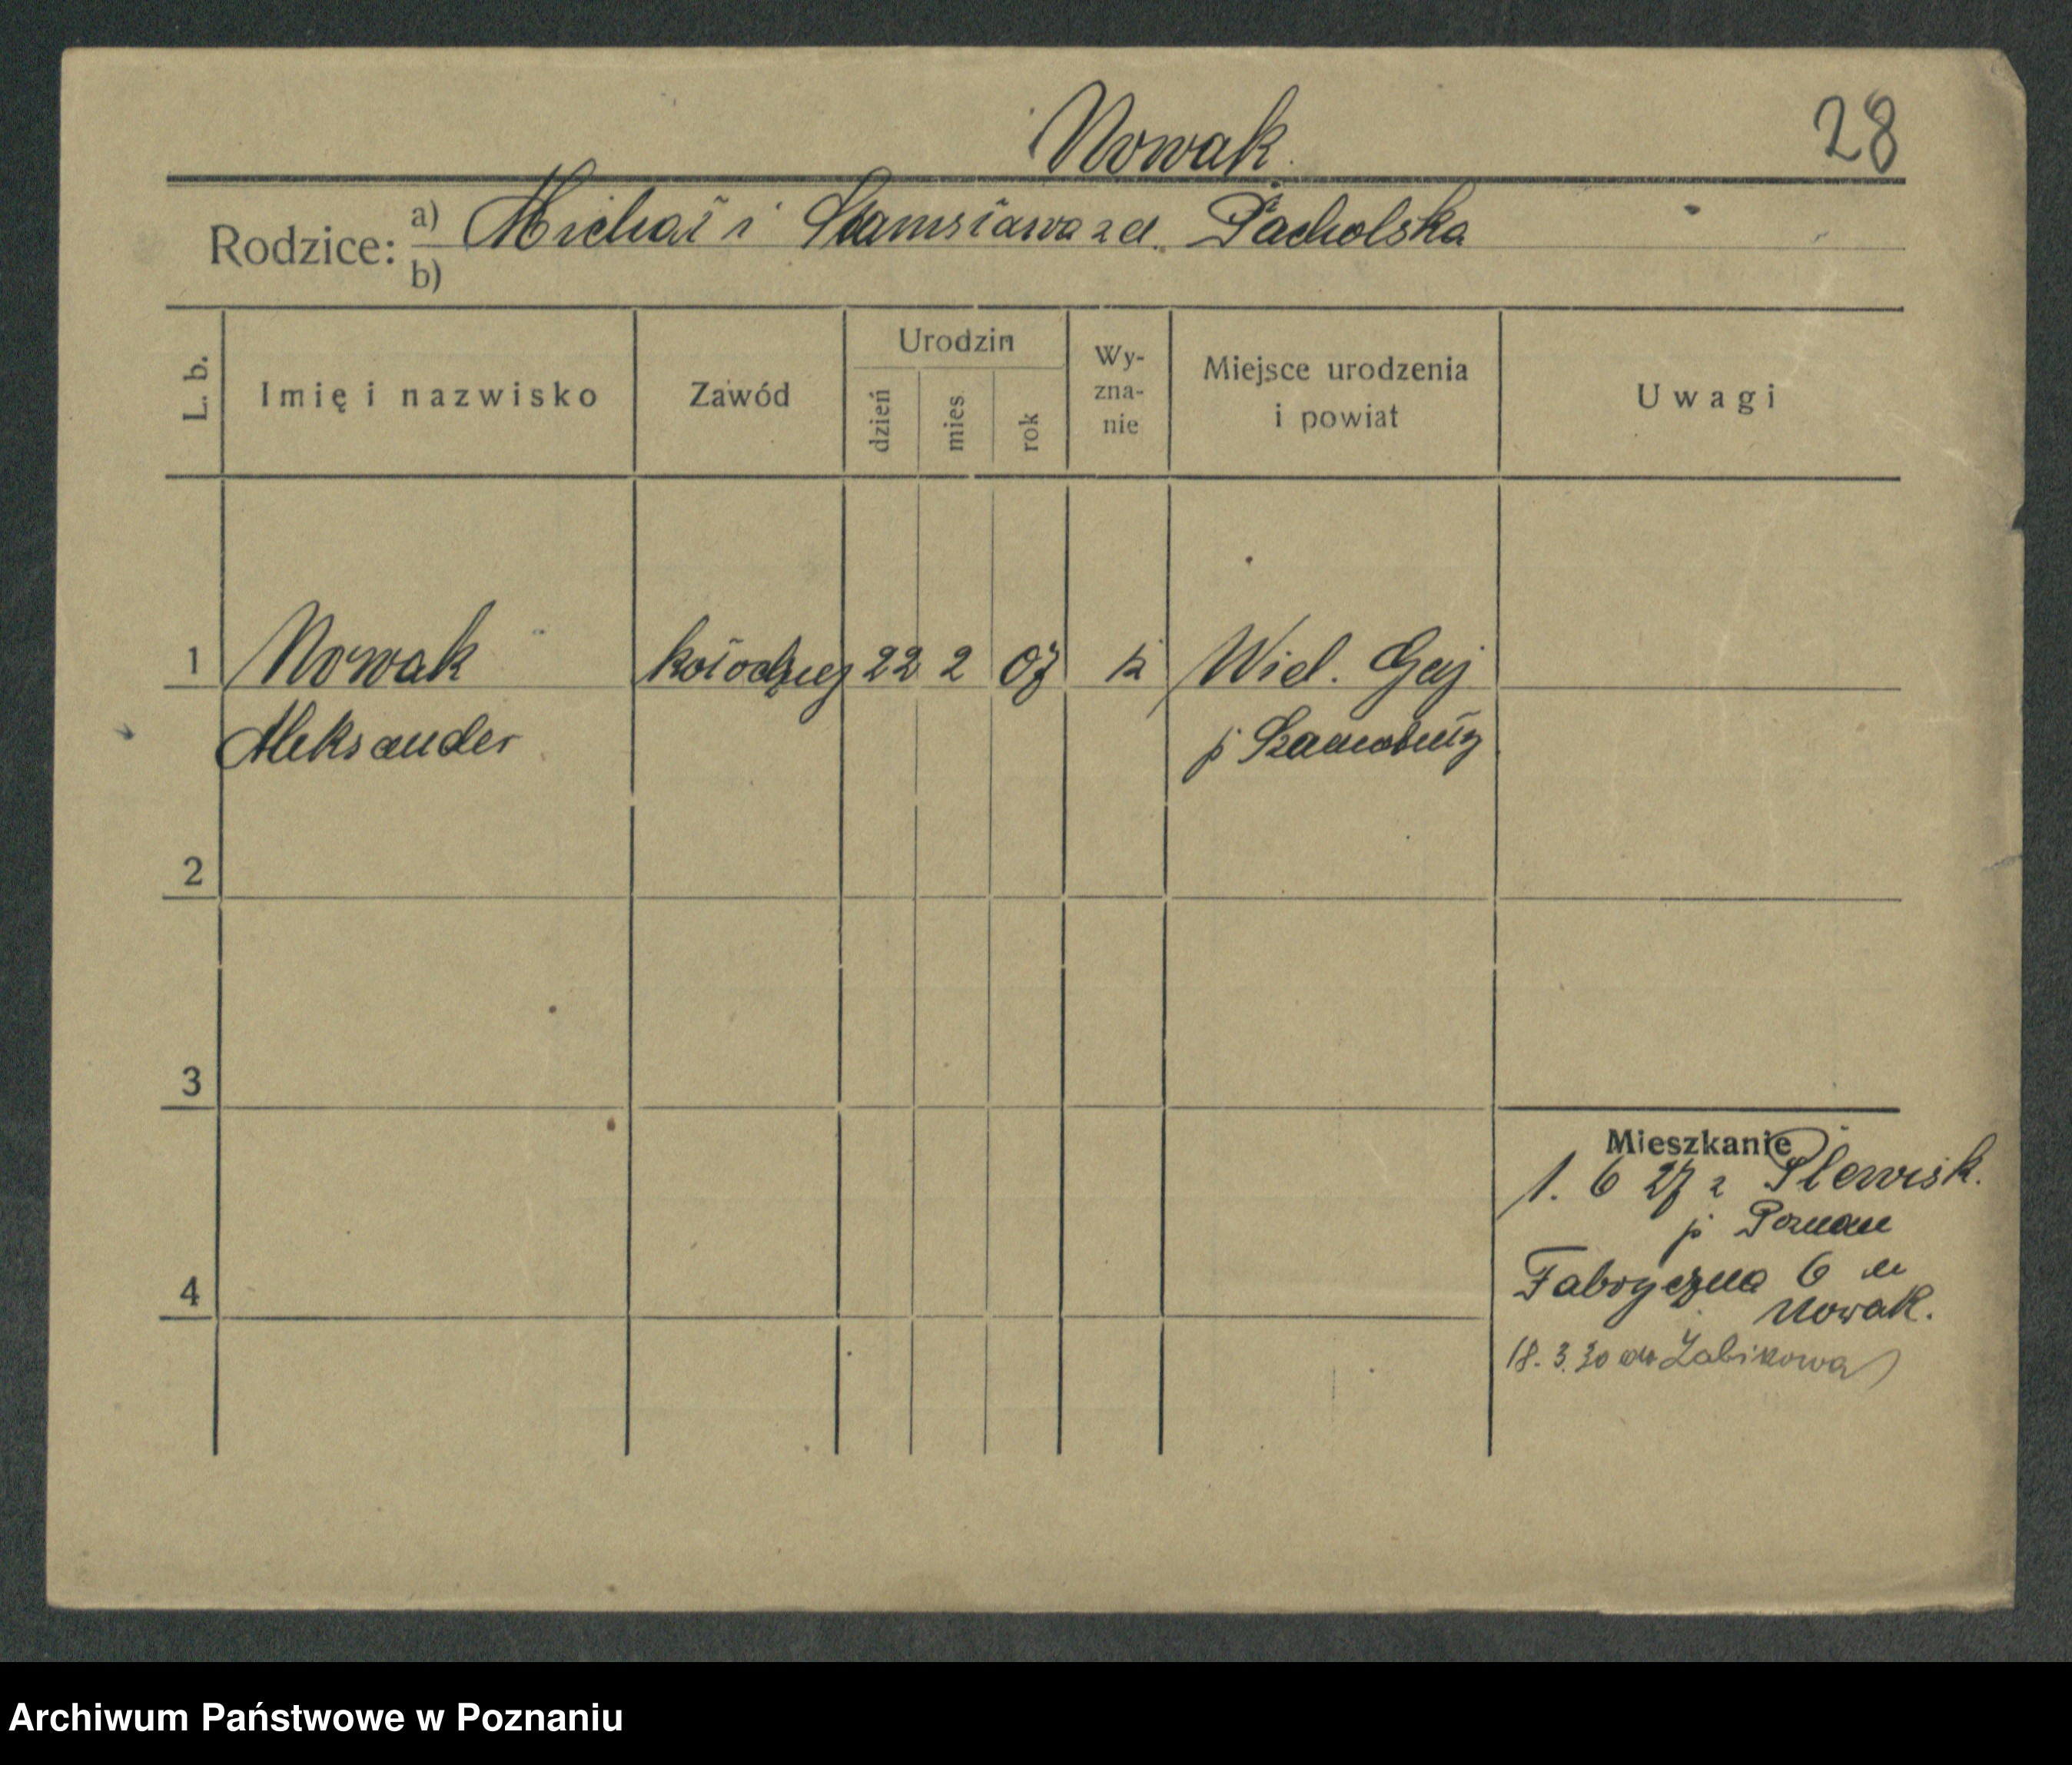 Nowak.
28
Rodzice: a) Michał i Stanisława zd. Pacholska
b)
L. b.
Imię i nazwisko
Zawód
Urodzin
dzień
mies
rok
Wy-
zna-
nie
Miejsce urodzenia
i powiat
Uwagi
1 Nowak kołodziej 22 2 07 k Wiel. Gaj
Aleksander p Szamotuły
2
3
Mieszkanie
1. 6 27 z Plewisk.
p Poznań
4
Fabryczna 6 u
Nowak.
18. 3. 30 do Żabikowa
Archiwum Państwowe w Poznaniu